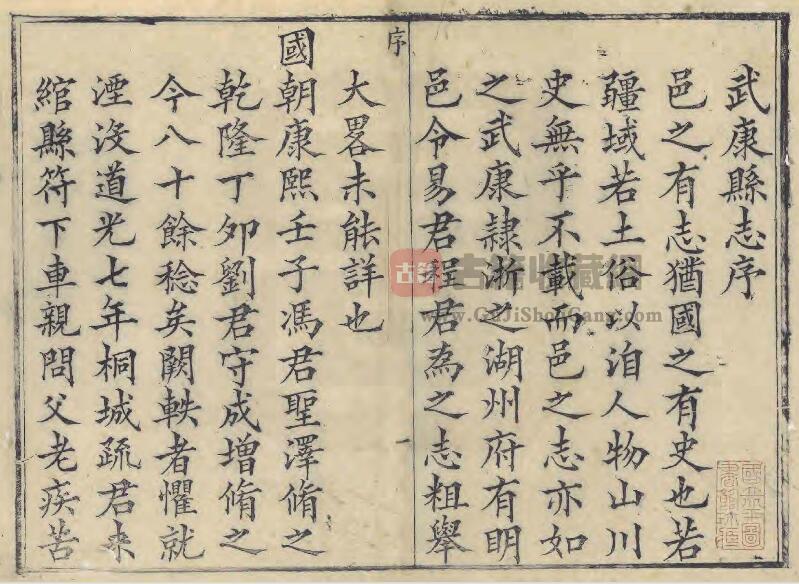 武康縣志序
邑之有志猶國之有史也若
疆域若土俗以洎人物山川
史無乎不載而邑之志亦如
之武康隸浙之湖州府有明
邑令易君程君為之志粗舉
序
一
大畧未能詳也
國朝康熙壬子馮君聖澤脩之
乾隆丁夘劉君守成增脩之
今八十餘稔矣闕軼者懼就
湮沒道光七年桐城疏君來
綰縣符下車親問父老疾苦
古籍收藏网
www.GuJiShouCang.com